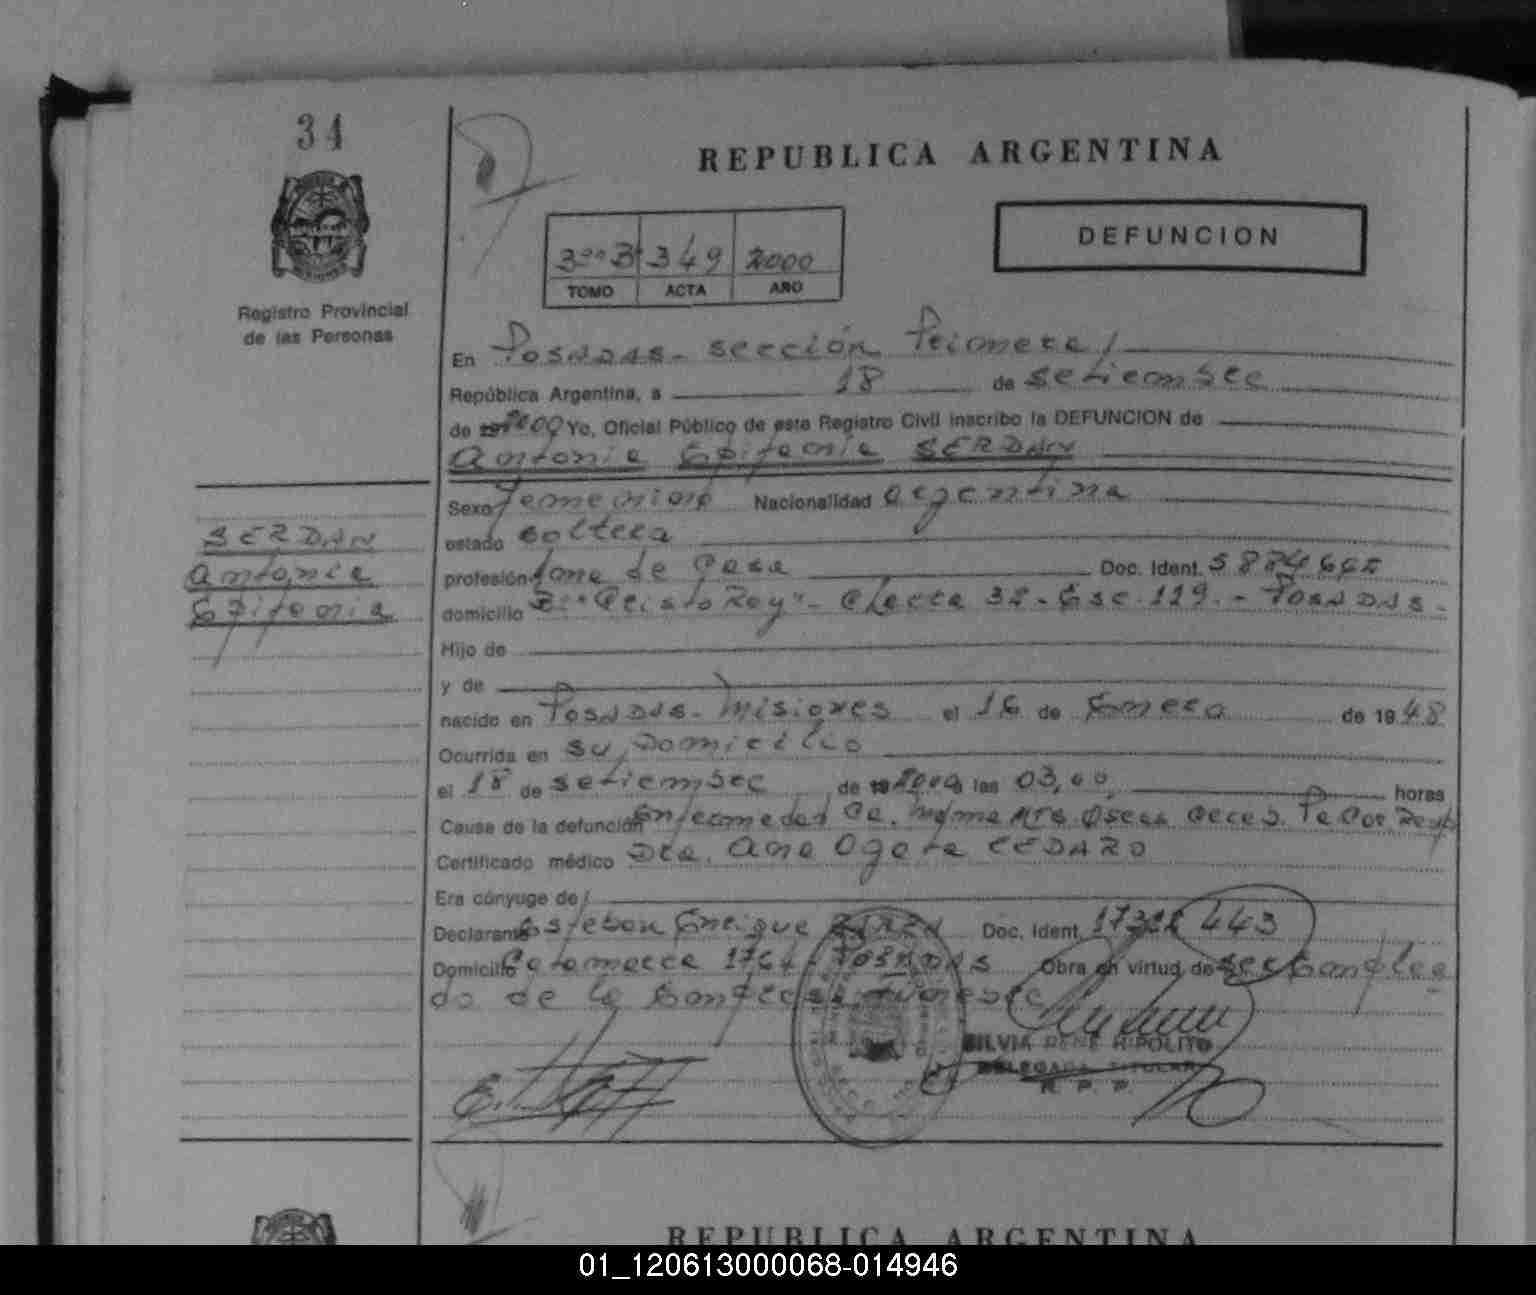 34
REPUBLICA ARGENTINA
DEFUNCION
3º "B" 349 2000
TOMO ACTA AÑO
Registro Provincial
de las Personas
En Posadas - sección Primera,
República Argentina, a 18 de setiembre
de 2000 Yo, Oficial Público de este Registro Civil inscribo la DEFUNCION de
Antonia Epifania SERDAN
Sexo femenino Nacionalidad argentina
SERDAN
Antonia
Epifania
estado soltera
profesión Ama de Casa Doc. Ident.
domicilio Bº "Cristo Rey" - Chacra 32 - Esc. 119. - Posadas.
Hijo de
y de
nacido en Posadas - Misiones el 16 de Enero de 1948
Ocurrida en su Domicilio
el 18 de setiembre de 2000 a las 03,00, horas
Cause de la defunción Enfermedad Ca. Mama MTS Osea
Certificado médico Dra. CEDARO
Era cónyuge de
Declarante Esteban Enrique Doc. Ident. 443
Domicilio Catamarca Posadas Obra en virtud de ser Emplea
do de la Empresa Funebre
SILVIA RENE HIPOLITO
DELEGADA TITULAR
R. P. P.
REPUBLICA ARGENTINA
01_120613000068-014946